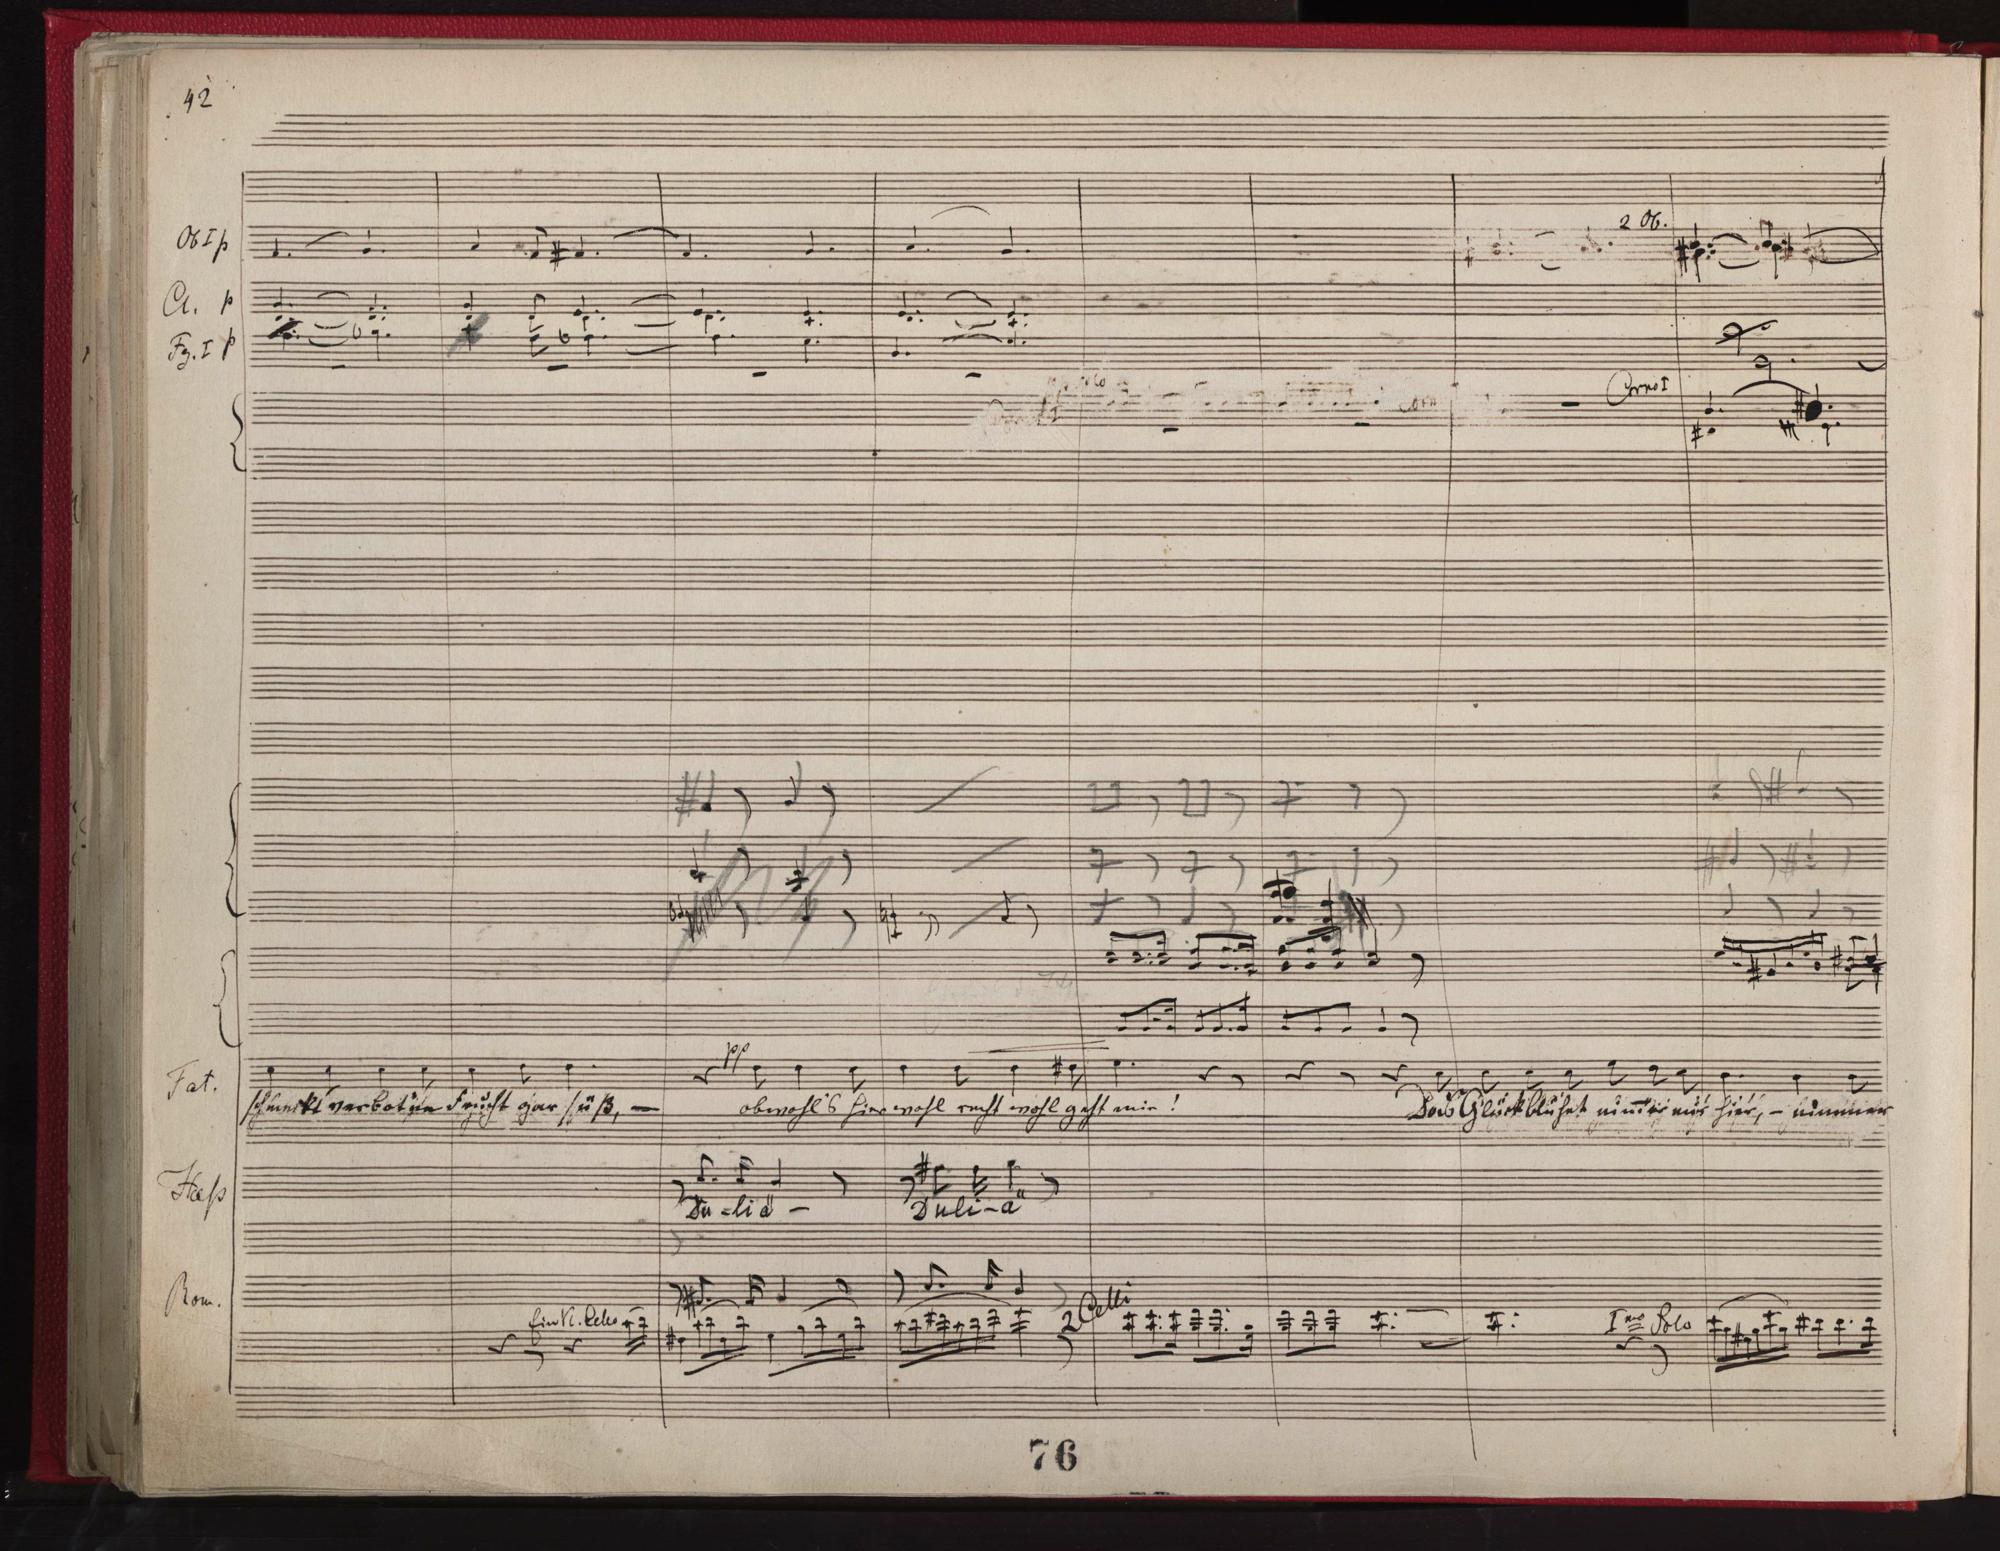 42
Ob I p
2 Ob.
Cl. p
Fg. I p
Corno I
pp
Fat.
schmeckt verbot'ne Frucht gar süß, — obwohl's hier wohl recht wohl geht mir! Das Glück blühet nimmer mir hier, – nimmer
Du-liä – Duli-ä
Rom.
2 Celli
Ein Vl. Cello
Imo Solo
76